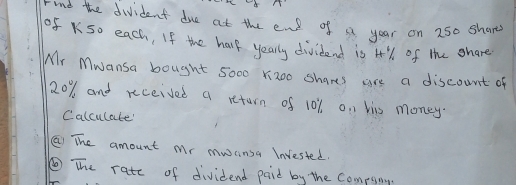 Find the dividend due at the end of a year on 250 shares
of K50 each, If the half yearly dividend is 4% of the share
Mr Mwansa bought 5000 K200 shares at a discount of
20% and received a return of 10% on his money.
Calculate:
(a) The amount Mr mwansa Invested.
(b) The rate of dividend paid by the Company.